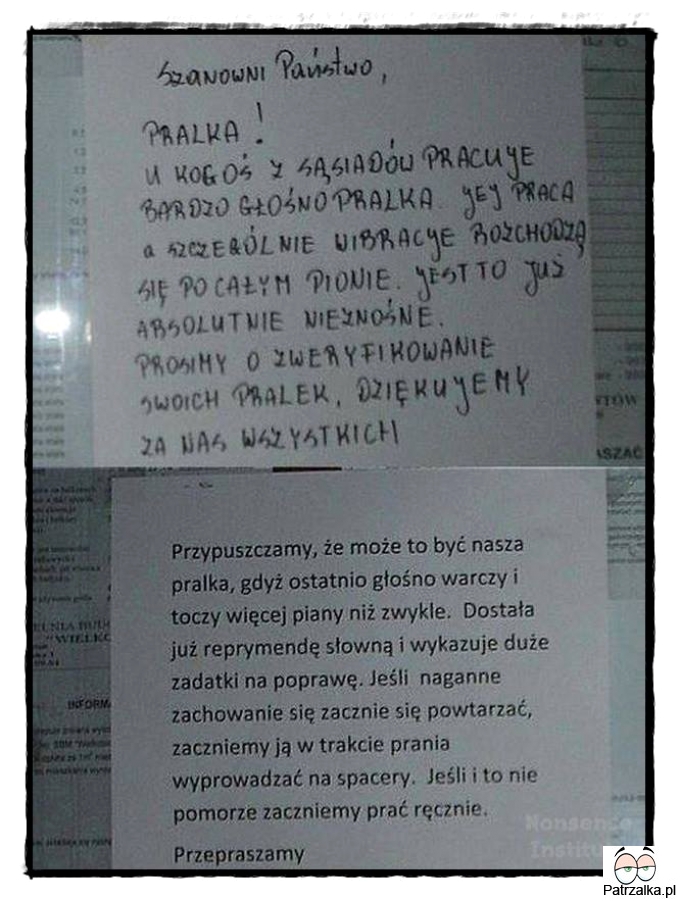 Szanowni Państwo,
PRALKA!
U KOGOŚ Z SĄSIADÓW PRACUJE
BARDZO GŁOŚNO PRALKA. JEJ PRACA
a SZCZEGÓLNIE WIBRACJE ROZCHODZĄ
SIĘ PO CAŁYM PIONIE. JEST TO JUŻ
ABSOLUTNIE NIEZNOŚNE.
PROSIMY O ZWERYFIKOWANIE
SWOICH PRALEK, DZIĘKUJEMY
ZA NAS WSZYSTKICH
Przypuszczamy, że może to być nasza
pralka, gdyż ostatnio głośno warczy i
toczy więcej piany niż zwykle. Dostała
już reprymendę słowną i wykazuje duże
zadatki na poprawę. Jeśli naganne
zachowanie się zacznie się powtarzać,
zaczniemy ją w trakcie prania
wyprowadzać na spacery. Jeśli i to nie
pomorze zaczniemy prać ręcznie.
Przepraszamy
INFORM
Nonsense
Institu
Patrzalka.pl